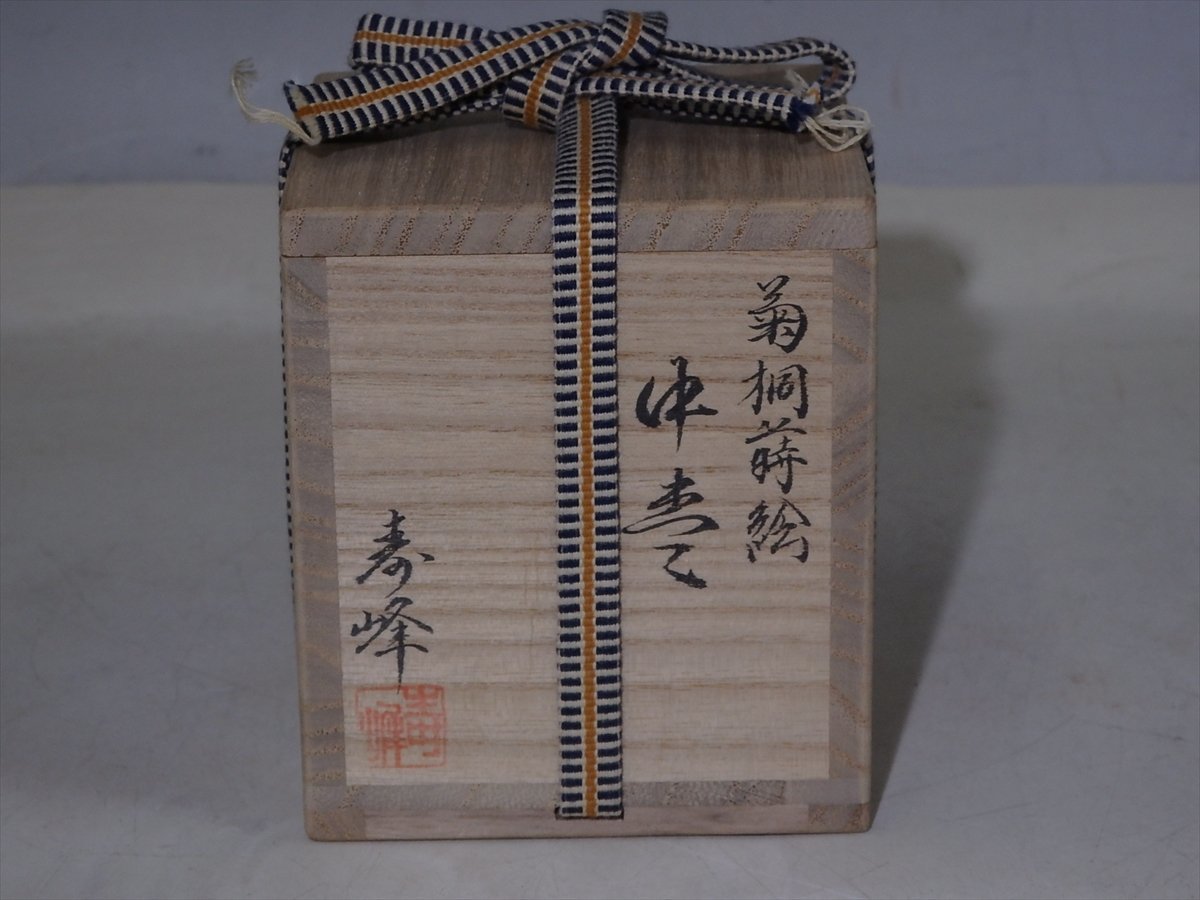 菊桐蒔絵
中棗
寿峰